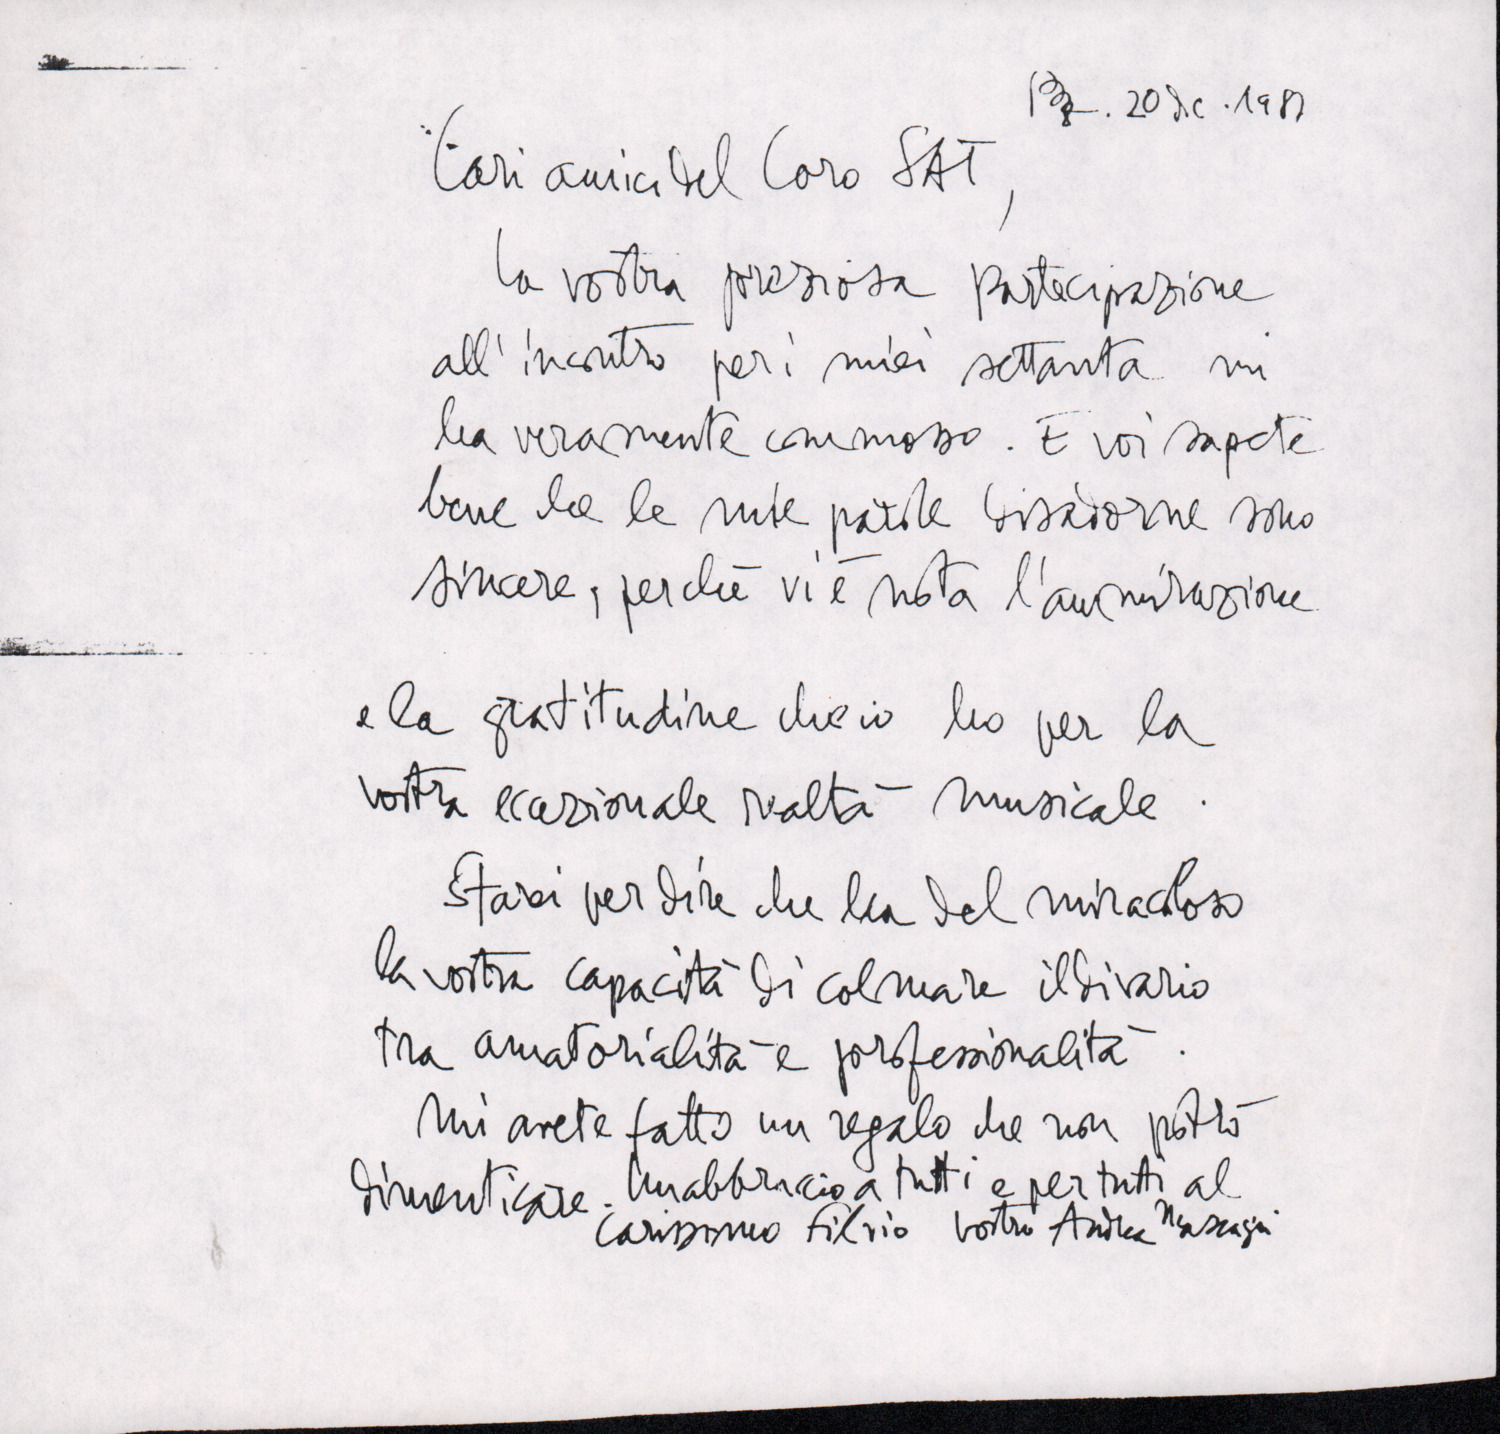 Bz. 20 dic. 1987
Cari amici del Coro SAT,
la vostra preziosa partecipazione
all'incontro per i miei settanta mi
ha veramente commosso. E voi sapete
bene che le mie parole disadorne sono
sincere, perchè vi è nota l'ammirazione
e la gratitudine che io ho per la
vostra eccezionale realtà musicale.
Starei per dire che ha del miracoloso
la vostra capacità di colmare il divario
tra amatorialità e professionalità.
Mi avete fatto un regalo che non potrò
dimenticare. Un abbraccio a tutti e per tutti al
carissimo Silvio vostro Andrea Mascagni